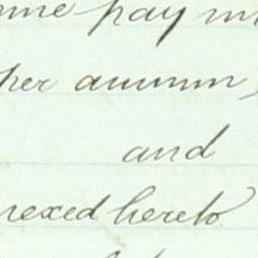 me pay
per annum,
and
nexed hereto